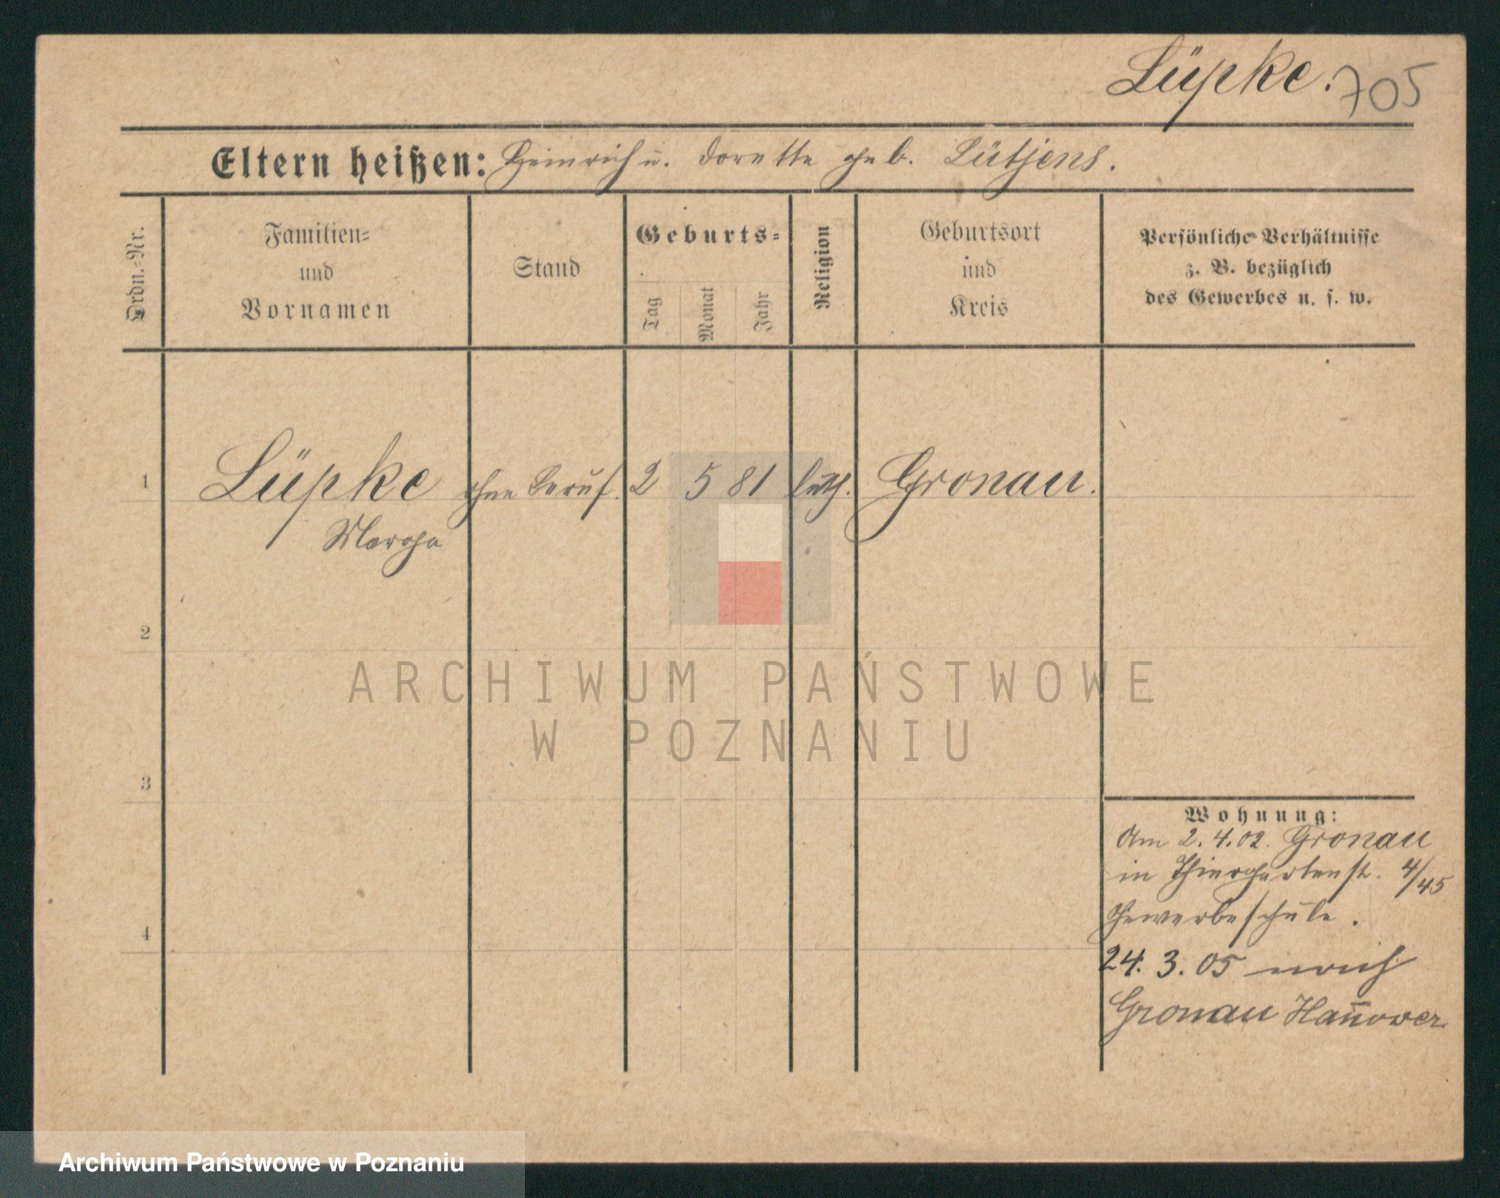 Lüpke. 705
Eltern heißen: Heinrich u. Dorette geb. Lütjens.
Ordn.-Nr.
Familien-
und
Vornamen
Stand
Geburts-
Tag
Monat
Jahr
Religion
Geburtsort
und
Kreis
Persönliche Verhältnisse
z. B. bezüglich
des Gewerbes u. s. w.
1 Lüpke ohne Beruf. 2 5 81 luth. Gronau.
Marga
2
3
4
ARCHIWUM PAŃSTWOWE
W POZNANIU
Wohnung:
Am 2.4.02. Gronau
in Thiergartenst. 4/45
Gewerbeschule.
24. 3. 05 nach
Gronau Hannover
Archiwum Państwowe w Poznaniu